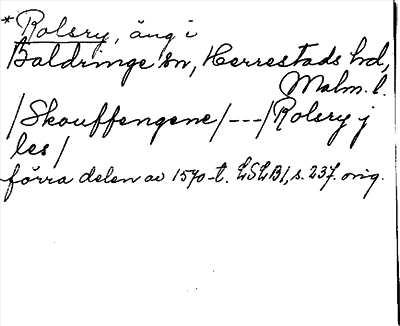 *Rolsry, äng i
Baldringe sn, Herrestads hd,
Malm. l.
/Skouffengene/---/Rolsry j
les/
förra delen av 1570-t. LSLB1, s. 237. orig.